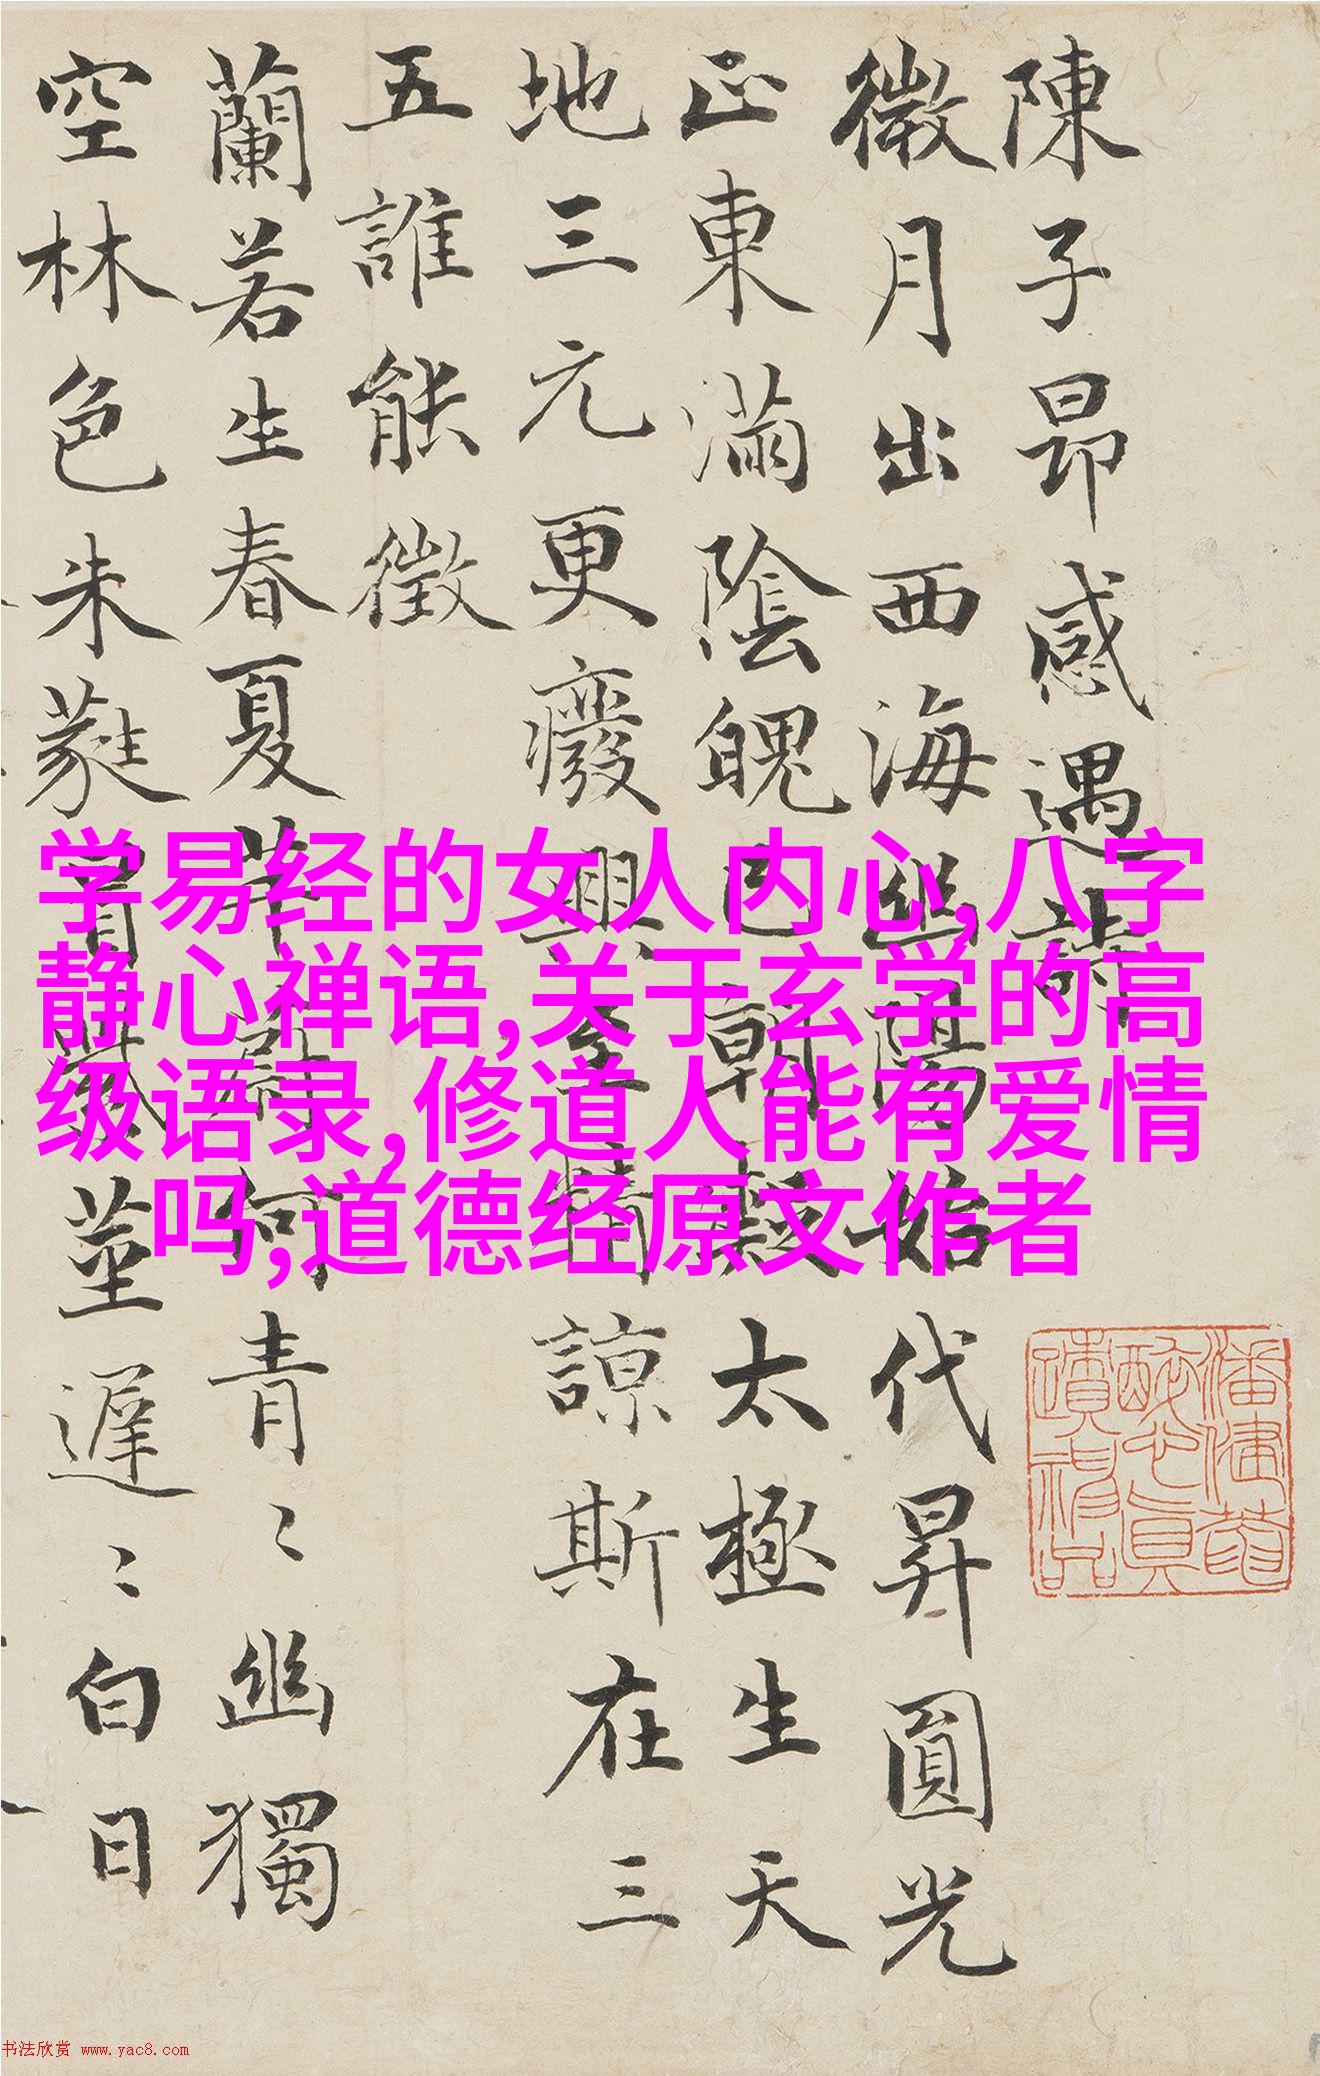 陳子昂感遇詩
微月出西海幽陽始代昇圓光
正東滿陰魄已朝凝太極生天
地三元更癈興至精諒斯在三
五誰能徵
蘭若生春夏芊蔚何青〻幽獨
空林色朱蕤冒紫莖遲〻白日
学易经的女人内心,八字
静心禅语,关于玄学的高
级语录,修道人能有爱情
吗,道德经原文作者
书法欣赏 www.yac8.com